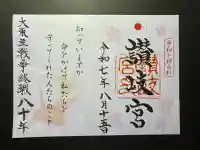 平和を祈る社
讃岐宮
令和七年八月十五日
知っていますか
命をかけて私たちを
守ってくれた人たちのこと
大東亜戦争終戦八十年